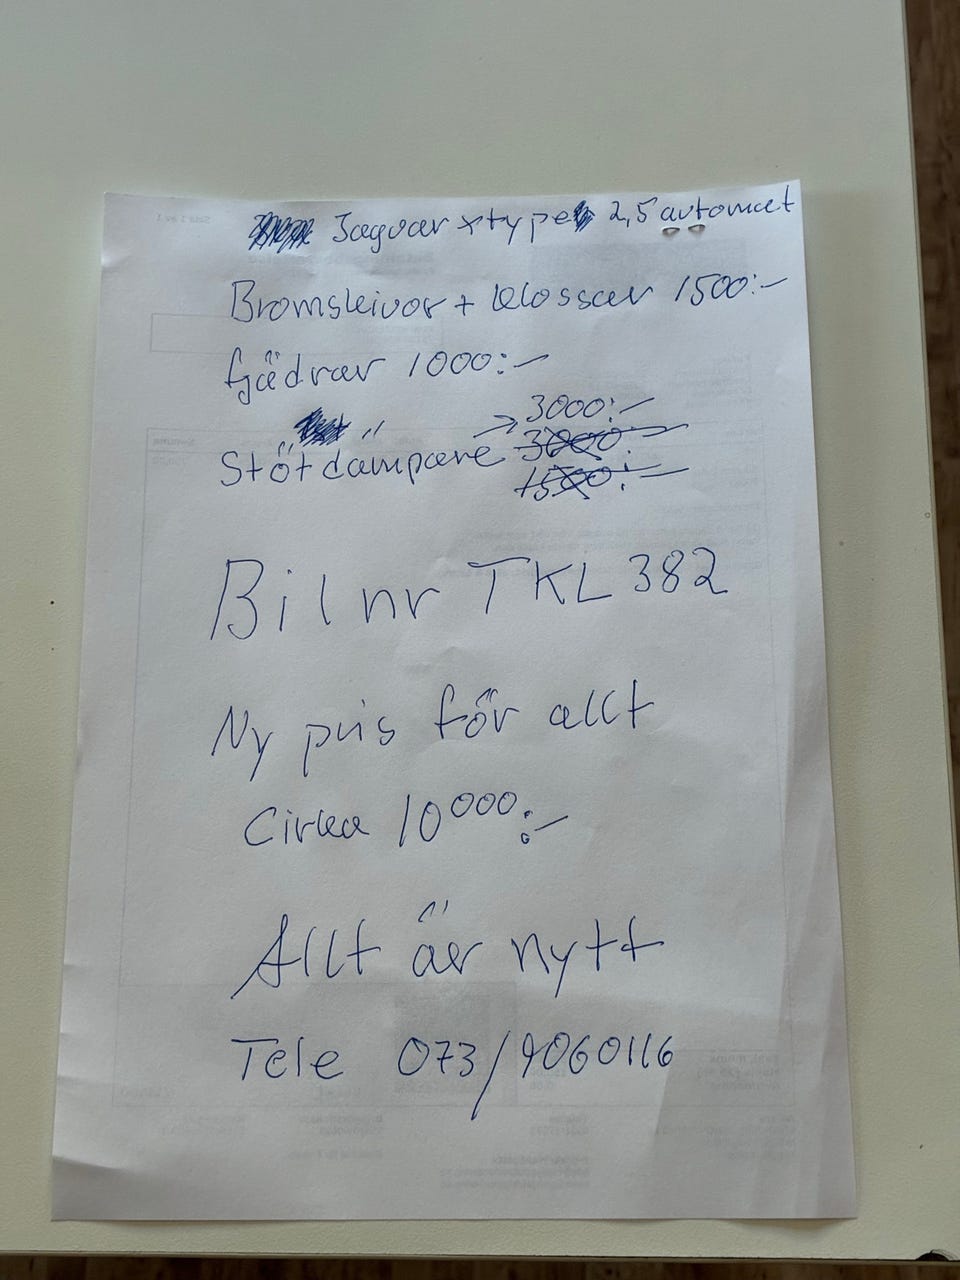 Jaguar xtype 2,5 automat
Bromskivor + klossar 1500:-
fjädrar 1000:-
3000:-
Stötdämpare 3000:-
1500:-
Bil nr TKL 382
Ny pris för allt
Cirka 10000:-
Allt är nytt
Tele 073/9060116